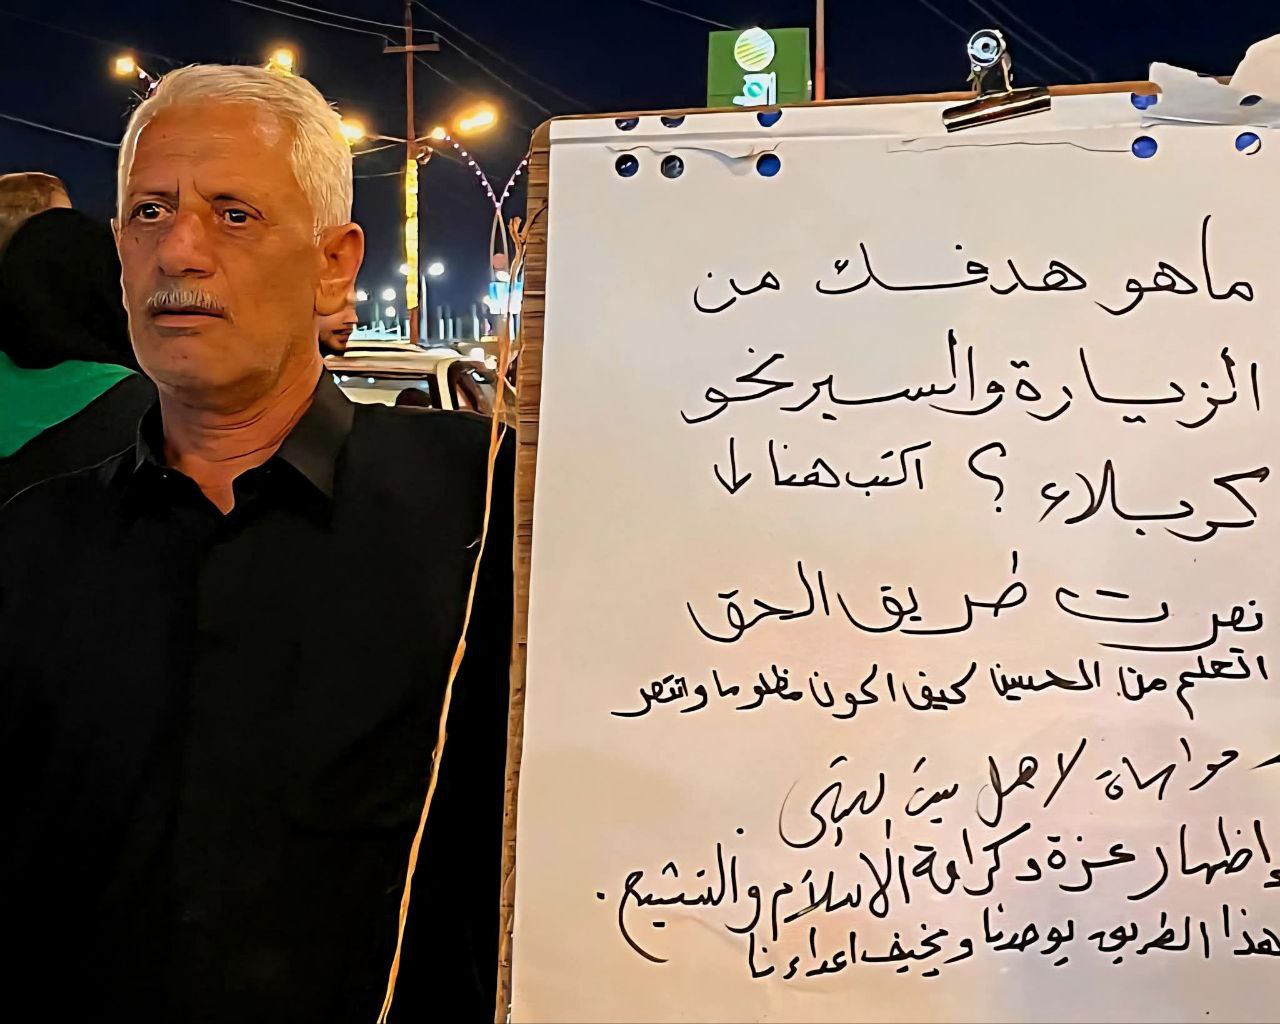 ماهو هدفك من
الزيارة والسير نحو
كربلاء ؟ اكتب هنا ↓
نصرت طريق الحق
اتعلم من الحسين كيف اكون مظلوما وانتصر
مواساة لاهل بيت النبي
وإظهار عزة وكرامة الاسلام والتشيع .
هذا الطريق يوحدنا ويخيف اعداءنا